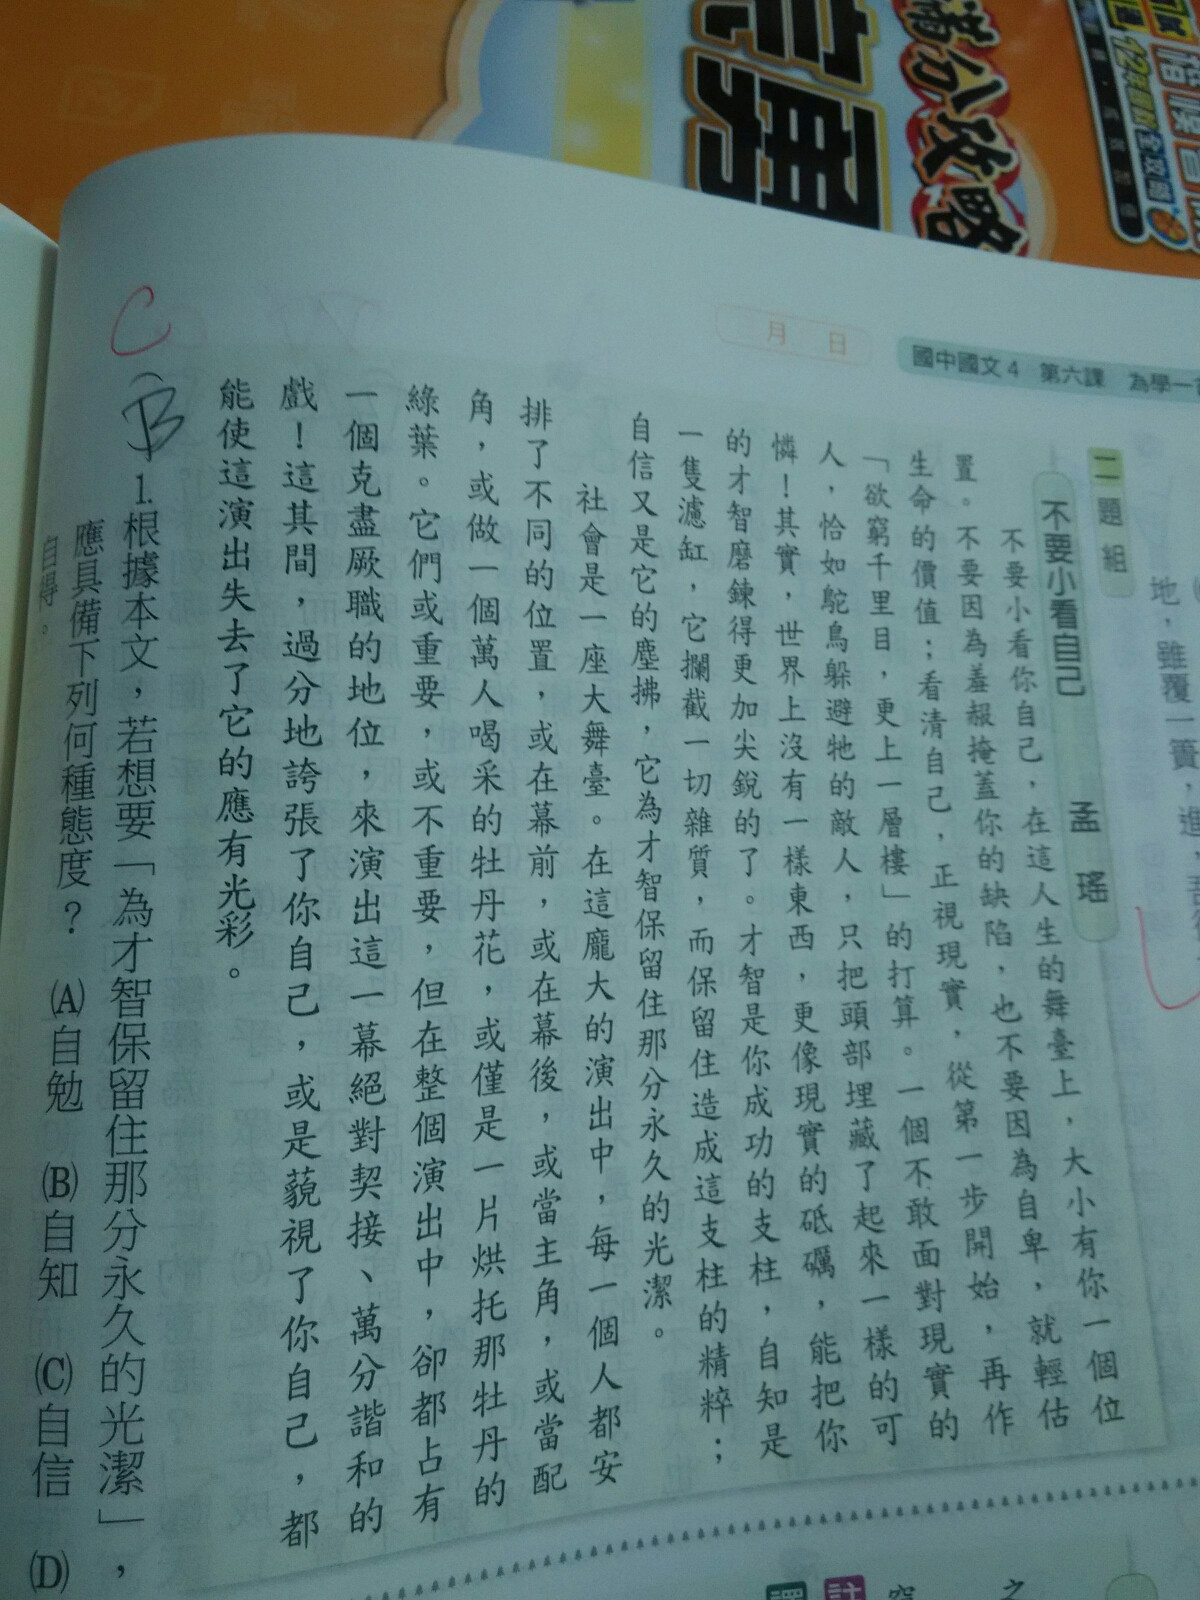 滿分攻略
國中國文4 第六課 為學一
月 日
地，雖覆一簣，進，吾往
二 題組
不要小看自己 孟瑤
不要小看你自己，在這人生的舞臺上，大小有你一個位
置。不要因為羞赧掩蓋你的缺陷，也不要因為自卑，就輕估
生命的價值；看清自己，正視現實，從第一步開始，再作
「欲窮千里目，更上一層樓」的打算。一個不敢面對現實的
人，恰如鴕鳥躲避牠的敵人，只把頭部埋藏了起來一樣的可
憐！其實，世界上沒有一樣東西，更像現實的砥礪，能把你
的才智磨鍊得更加尖銳的了。才智是你成功的支柱，自知是
一隻濾缸，它攔截一切雜質，而保留住造成這支柱的精粹；
自信又是它的塵拂，它為才智保留住那分永久的光潔。
社會是一座大舞臺。在這龐大的演出中，每一個人都安
排了不同的位置，或在幕前，或在幕後，或當主角，或當配
角，或做一個萬人喝采的牡丹花，或僅是一片烘托那牡丹的
綠葉。它們或重要，或不重要，但在整個演出中，卻都占有
一個克盡厥職的地位，來演出這一幕絕對契接、萬分諧和的
戲！這其間，過分地誇張了你自己，或是藐視了你自己，都
能使這演出失去了它的應有光彩。
C
B
1.根據本文，若想要「為才智保留住那分永久的光潔」，
應具備下列何種態度？ (A)自勉 (B)自知 (C)自信 (D)
自得。